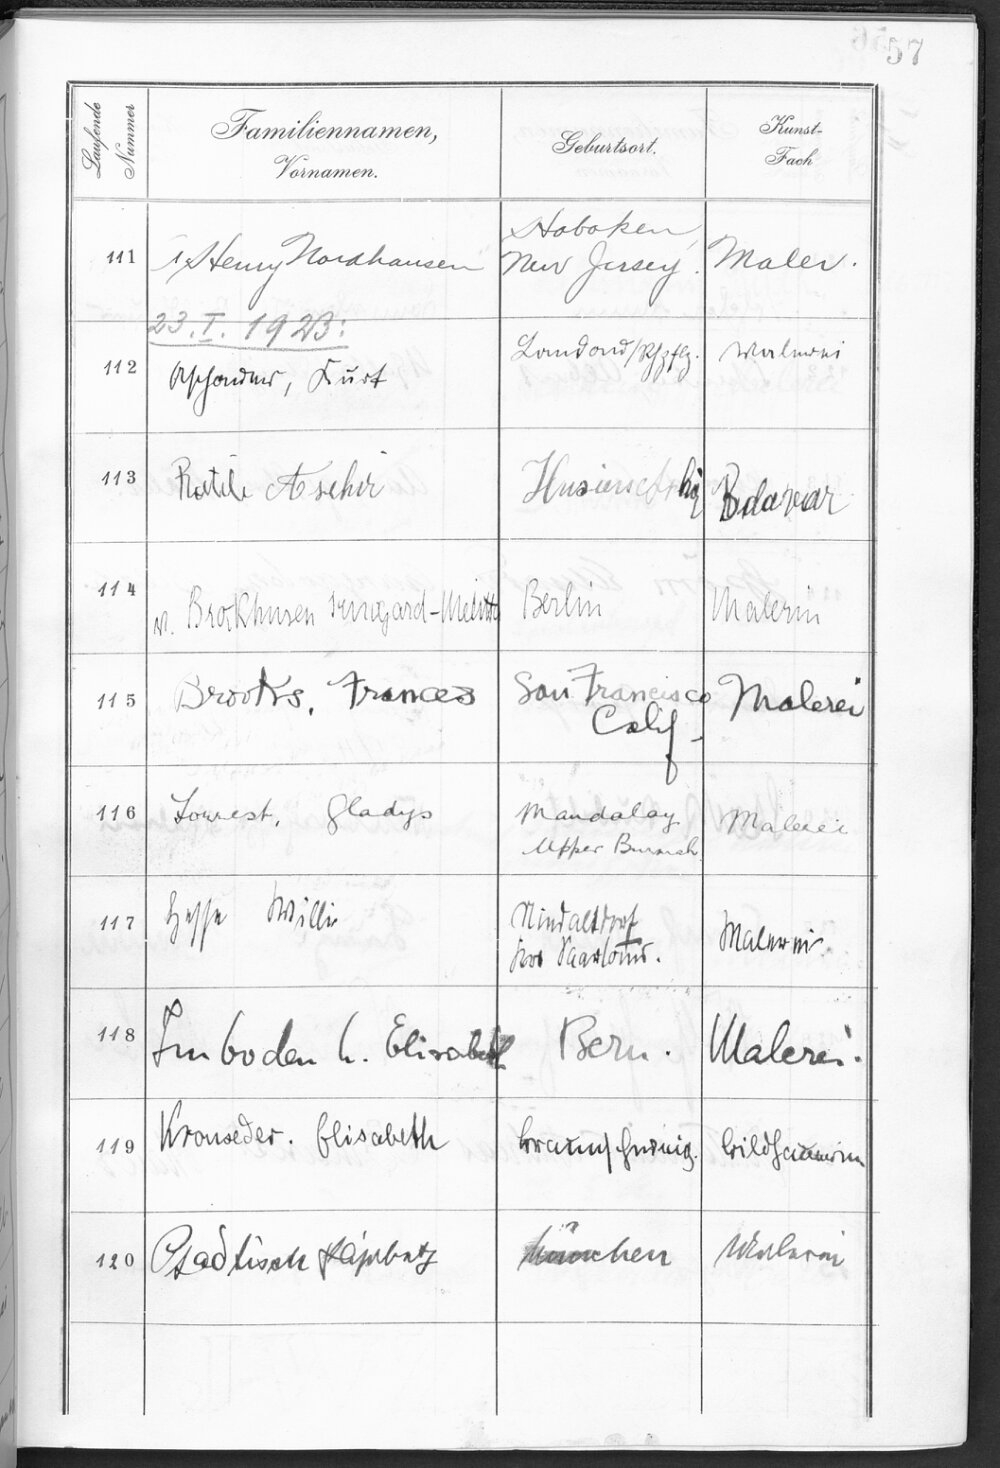 57
Laufende Nummer
Familiennamen,
Vornamen.
Geburtsort.
Kunst-
Fach
111 Henry Nordhausen Hoboken, New Jersey. Maler.
23. I. 1923:
112 Kurt Malerei
113 Aschir
114 v. Brockhusen Irmgard-Melitta Berlin Malerin
115 Brooks, Frances San Francisco Calif. Malerei
116 Forrest, Gladys Mandalay Upper Burmah Malerei
117 Hesse Willi Niedaltdorf Krs Saarlouis. Malerei.
118 Imboden h. Elisabeth Bern. Malerei.
119 Kronseder. Elisabeth Braunschweig. Bildhauerin
120 München Malerei